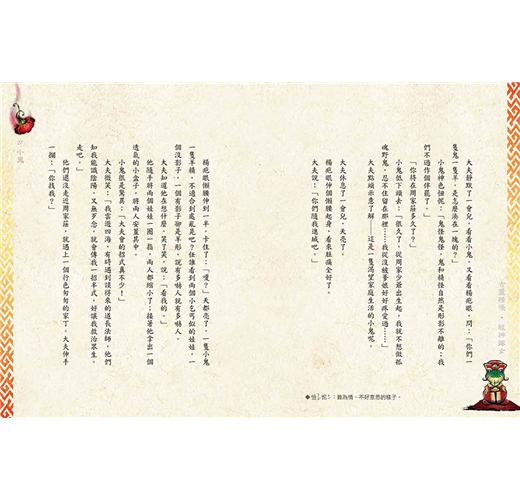 大夫靜默了一會兒，看看小鬼，又看看楊疤眼，問：「你們一
隻鬼一隻羊，是怎麼湊在一塊的？」
小鬼神色忸怩：「鬼怪鬼怪，鬼和精怪自然是形影不離的；我
們不過作個伴罷了。」
「你待在周家莊多久了？」
小鬼低下頭去：「很久了，從周家少爺出生起。我就不想做孤
魂野鬼，忍不住留在那裡……我從沒被爹娘好好疼愛過……」
大夫點頭示意了解——這是一隻渴望家庭生活的小鬼呢。
大夫休息了一會兒，天亮了。
楊疤眼伸個懶腰起身，看來脹痛全好了。
大夫說：「你們隨我進城吧。」
◆忸怩：難為情、不好意思的樣子。
楊疤眼懶腰伸到一半，卡住了：「嗄？」天都亮了，一隻小鬼
一隻羊精，不適合到處亂晃吧？任誰看到兩個小乞丐似的娃娃，一
個沒影子，一個有影子卻是羊形，說有多嚇人就有多嚇人。
大夫知道他在想什麼，笑了笑，說：「看我的。」
他隨手將兩個娃娃一圈一指，兩人都縮小了；接著他拿出一個
透氣的小盒子，將兩人安置其中。
小鬼很是驚異：「大夫會的招式真不少！」
大夫微笑：「我雲遊四海，有時遇到談得來的道長法師，他們
知我能識陰陽，又無歹念，就會傳我一招半式，好讓我救治眾生。
走吧。」
他們還沒走近周家莊，就遇上一個行色匆匆的家丁。大夫伸手
一攔：「你找我？」
小鬼